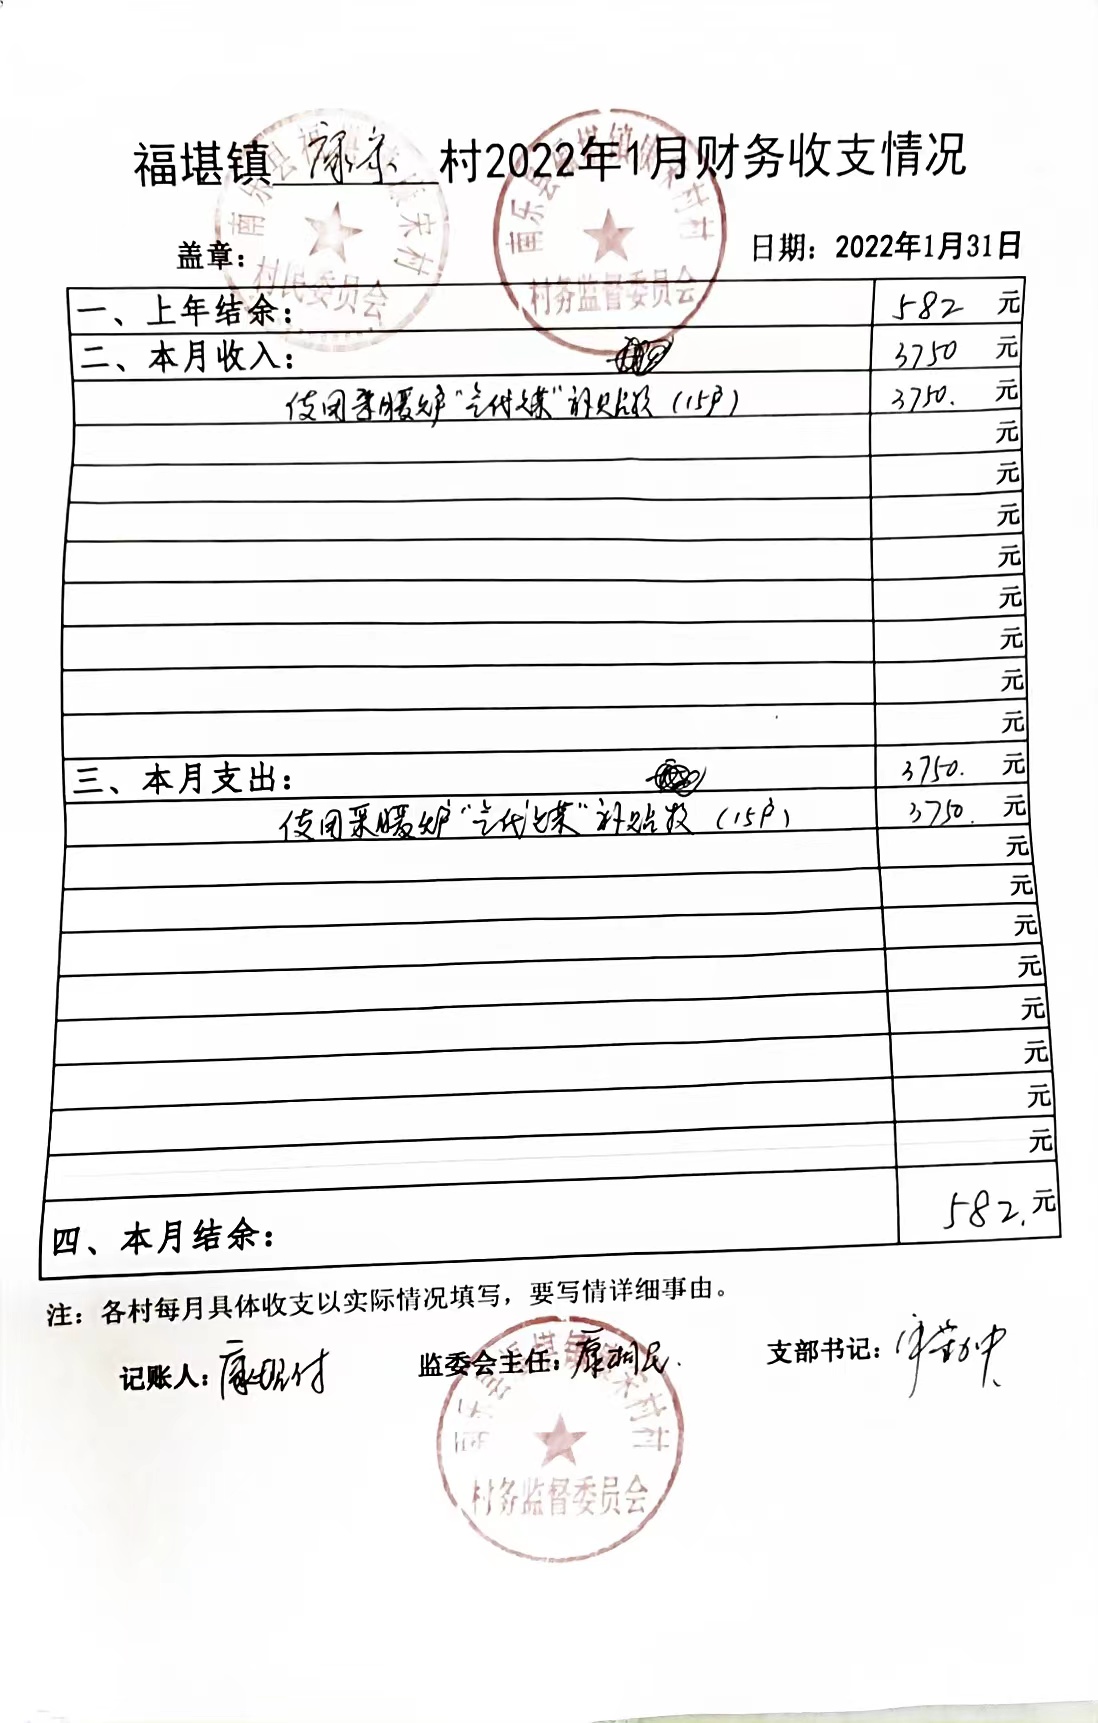 福堪镇康宋村2022年1月财务收支情况
盖章：
日期：2022年1月31日
南乐县福堪镇康宋村
村民委员会
南乐县福堪镇康宋村村
村务监督委员会
一、上年结余： 582 元
二、本月收入： 3750 元
使用采暖炉"气代煤"补贴款（15户） 3750. 元
元
元
元
元
元
元
元
元
三、本月支出： 3750. 元
使用采暖炉"气代煤"补贴款（15户） 3750. 元
元
元
元
元
元
元
元
元
四、本月结余： 582. 元
注：各村每月具体收支以实际情况填写，要写情详细事由。
记账人：康 付 监委会主任：康 民. 支部书记：宋
南乐县福堪镇康宋村村
村务监督委员会